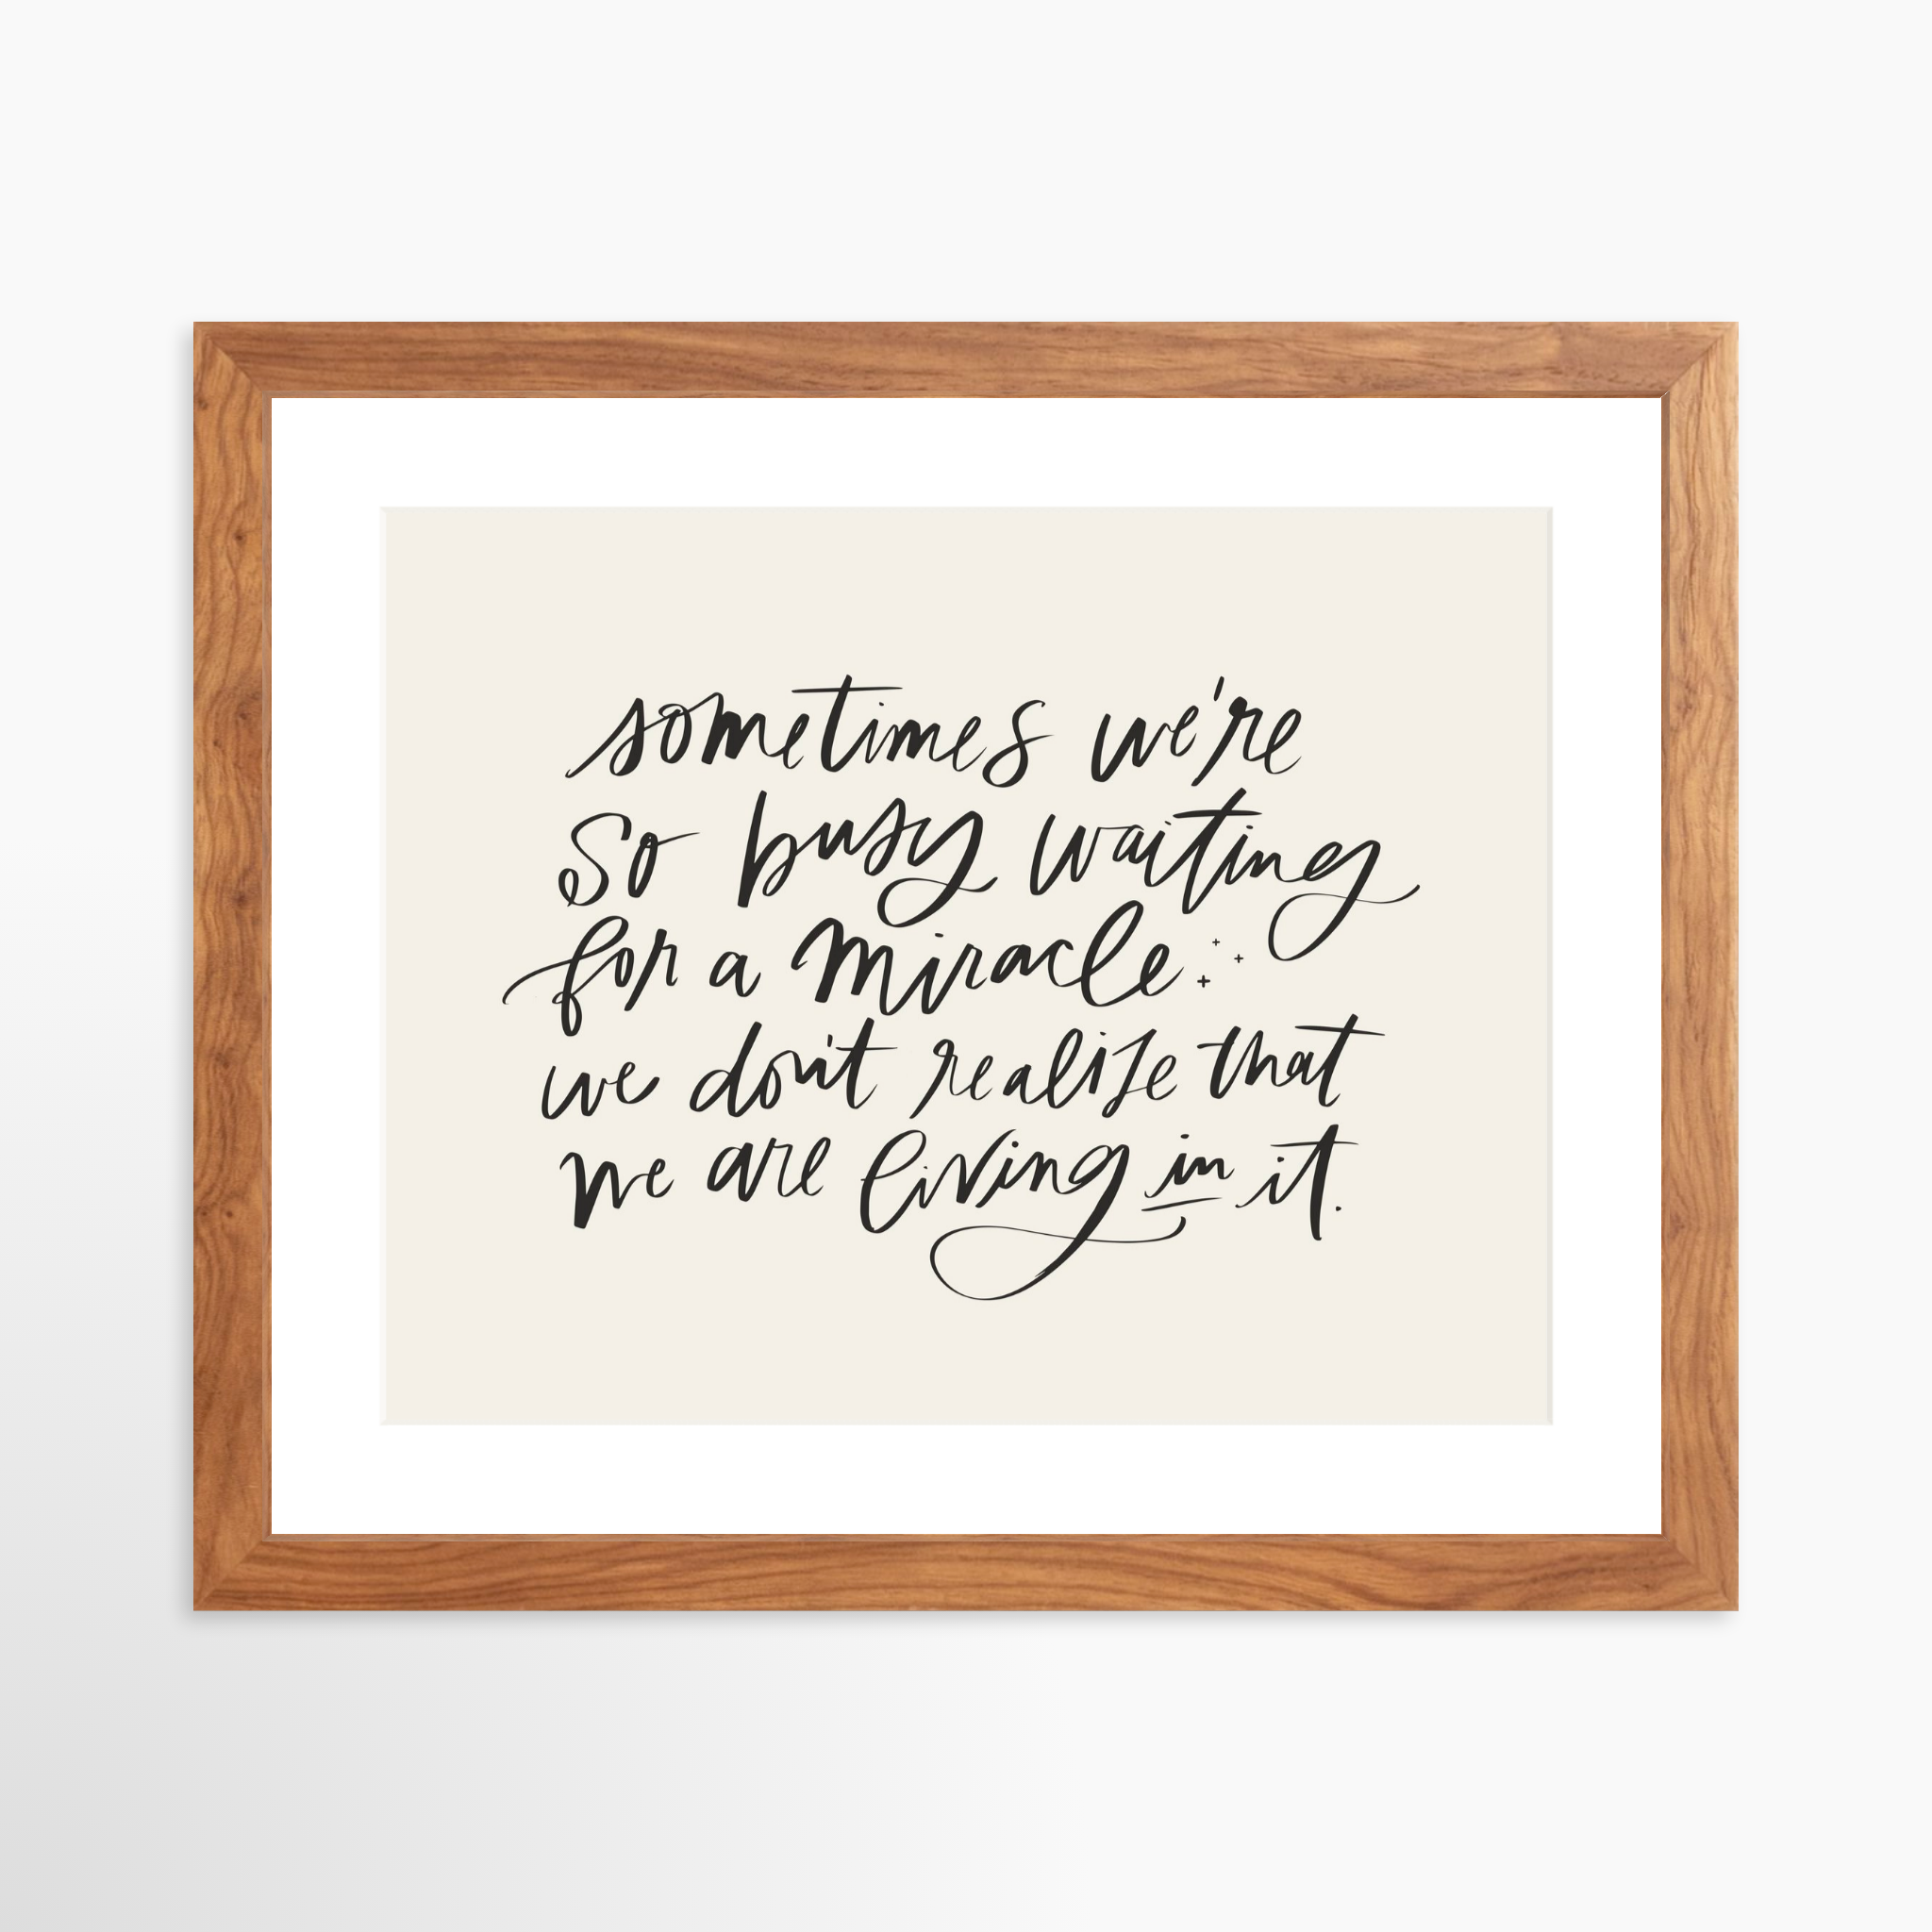 sometimes we're
so busy waiting
for a miracle
we don't realize that
we are living in it.